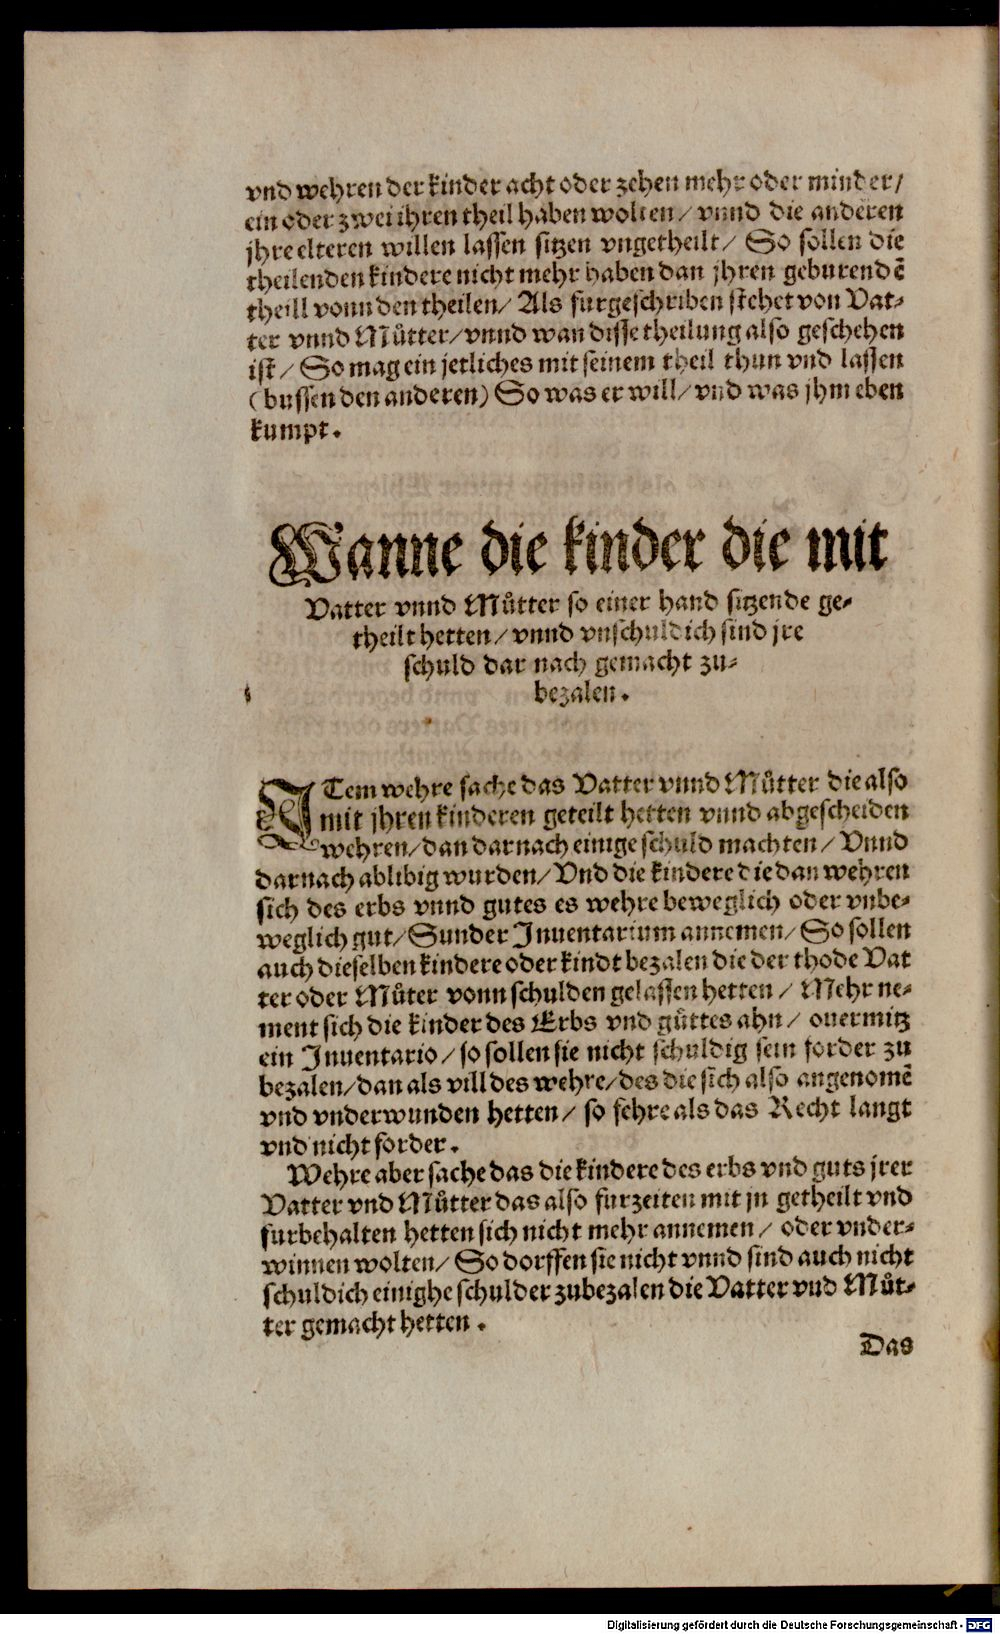 vnd wehren der kinder acht oder zehen mehr oder minder/
ein oder zwei ihren theil haben wolten/ vnnd die anderen
jhre elteren willen lassen sitzen vngetheilt/ So sollen die
theilenden kindere nicht mehr haben dan jhren geburendẽ
theill vonn den theilen/ Als furgeschriben stehet von Vat-
ter vnnd Můtter/ vnnd wan disse theilung also geschehen
ist/ So mag ein jetliches mit seinem theil thun vnd lassen
(bussen den anderen) So was er will/ vnd was jhm eben
kumpt.
Wanne die kinder die mit
Vatter vnnd Můtter so einer hand sitzende ge-
theilt hetten/ vnnd vnschuldich sind jre
schuld dar nach gemacht zu-
bezalen.
ITem wehre sache das Vatter vnnd Můtter die also
mit jhren kinderen geteilt hetten vnnd abgescheiden
wehren/ dan darnach einige schuld machten/ Vnnd
darnach ablibig wurden/ Vnd die kindere die dan wehren
sich des erbs vnnd gutes es wehre beweglich oder vnbe-
weglich gut/ Sunder Inuentarium annemen/ So sollen
auch dieselben kindere oder kindt bezalen die der thode Vat
ter oder Můter vonn schulden gelassen hetten/ Mehr ne-
ment sich die kinder des Erbs vnd gůttes ahn/ ouermitz
ein Inuentario/ so sollen sie nicht schuldig sein forder zu
bezalen/ dan als vill des wehre/ des die sich also angenomẽ
vnd vnderwunden hetten/ so fehre als das Recht langt
vnd nicht forder.
Wehre aber sache das die kindere des erbs vnd guts jrer
Vatter vnd Můtter das also furzeiten mit jn getheilt vnd
furbehalten hetten sich nicht mehr annemen/ oder vnder-
winnen wolten/ So dorffen sie nicht vnnd sind auch nicht
schuldich einighe schulder zubezalen die Vatter vnd Můt-
ter gemacht hetten.
Das
Digitalisierung gefördert durch die Deutsche Forschungsgemeinschaft - DFG